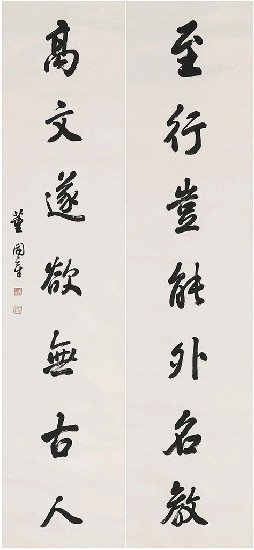 至行豈能外名教
高文遂欲無古人
董開章